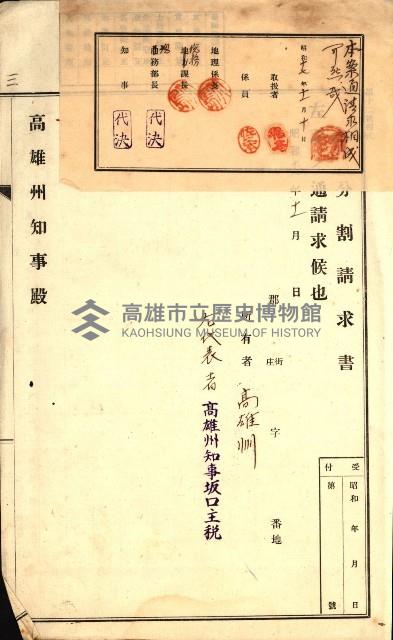 本案通請求相成
可然哉
昭和十七年十一月十日
取扱者
係員
地理係長
地方課長
税務
總務部長
知事
代決
代決
分割請求書
通請求候也
年十一月 日
郡
街
庄
字
番地
所有者 高雄州
右代表者 高雄州知事坂口主税
高雄州知事殿
受付
昭和 年 月 日
第 號
三
高雄市立歷史博物館
KAOHSIUNG MUSEUM OF HISTORY